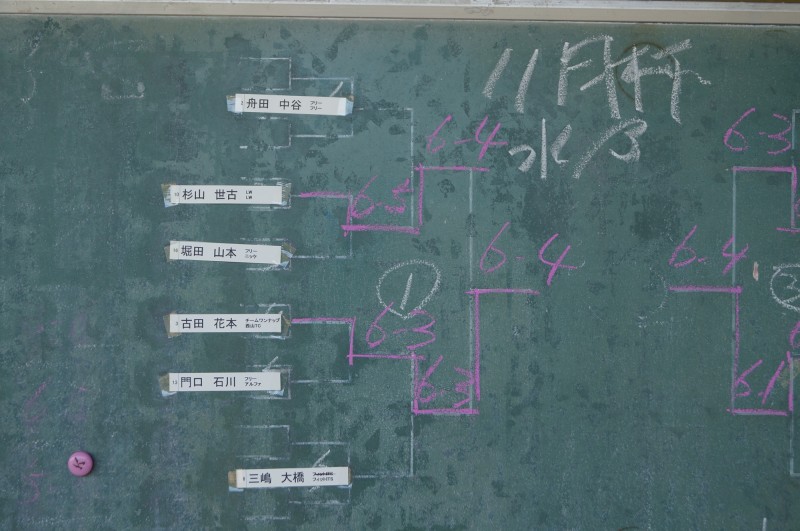 11月杯
水/13
舟田 中谷 フリー フリー
6-4
6-3
杉山 世古 LW LW
6-5
堀田 山本 フリー ニッケ
6-4
6-4
①
③
古田 花本 チームワンナップ 西山TC
6-3
門口 石川 フリー アルファ
6-3
6-1
三嶋 大橋